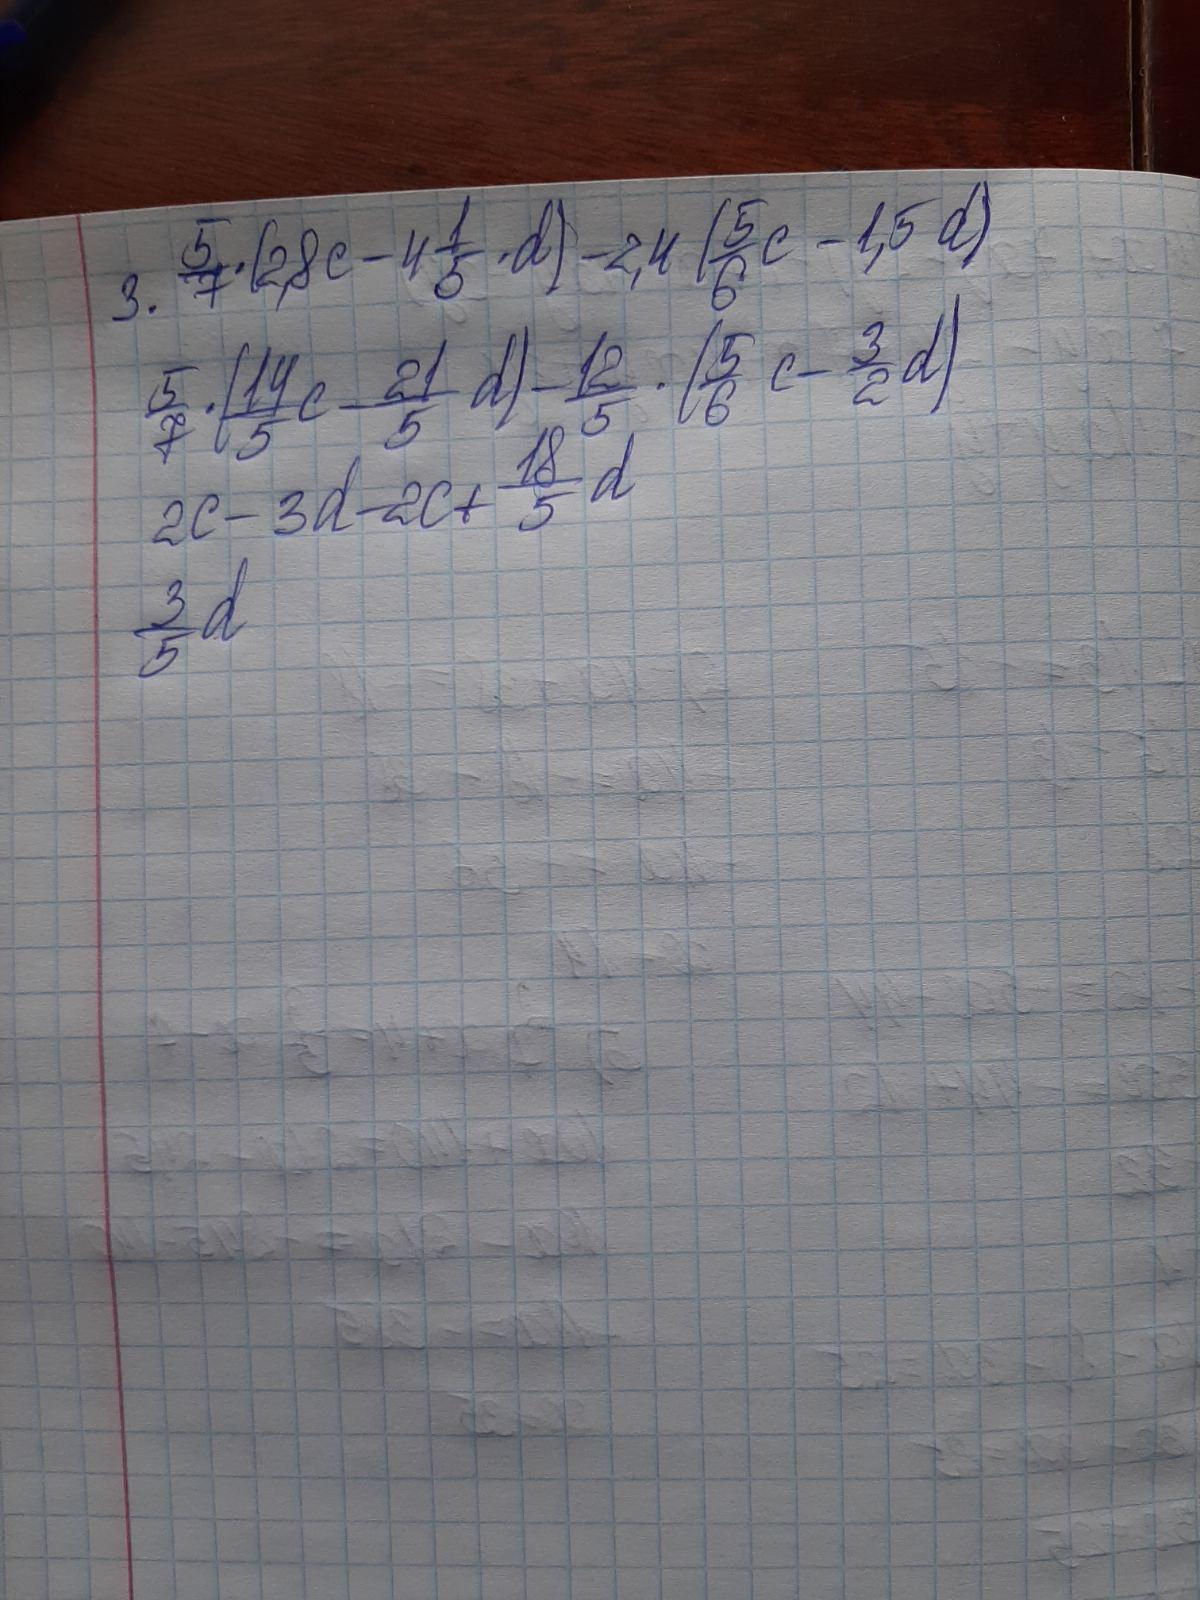 3. 5/7 · (2,8c - 4 1/5 · d) - 2,4 (5/6 c - 1,5 d)
5/7 · (14/5 c - 21/5 d) - 12/5 · (5/6 c - 3/2 d)
2c - 3d - 2c + 18/5 d
3/5 d